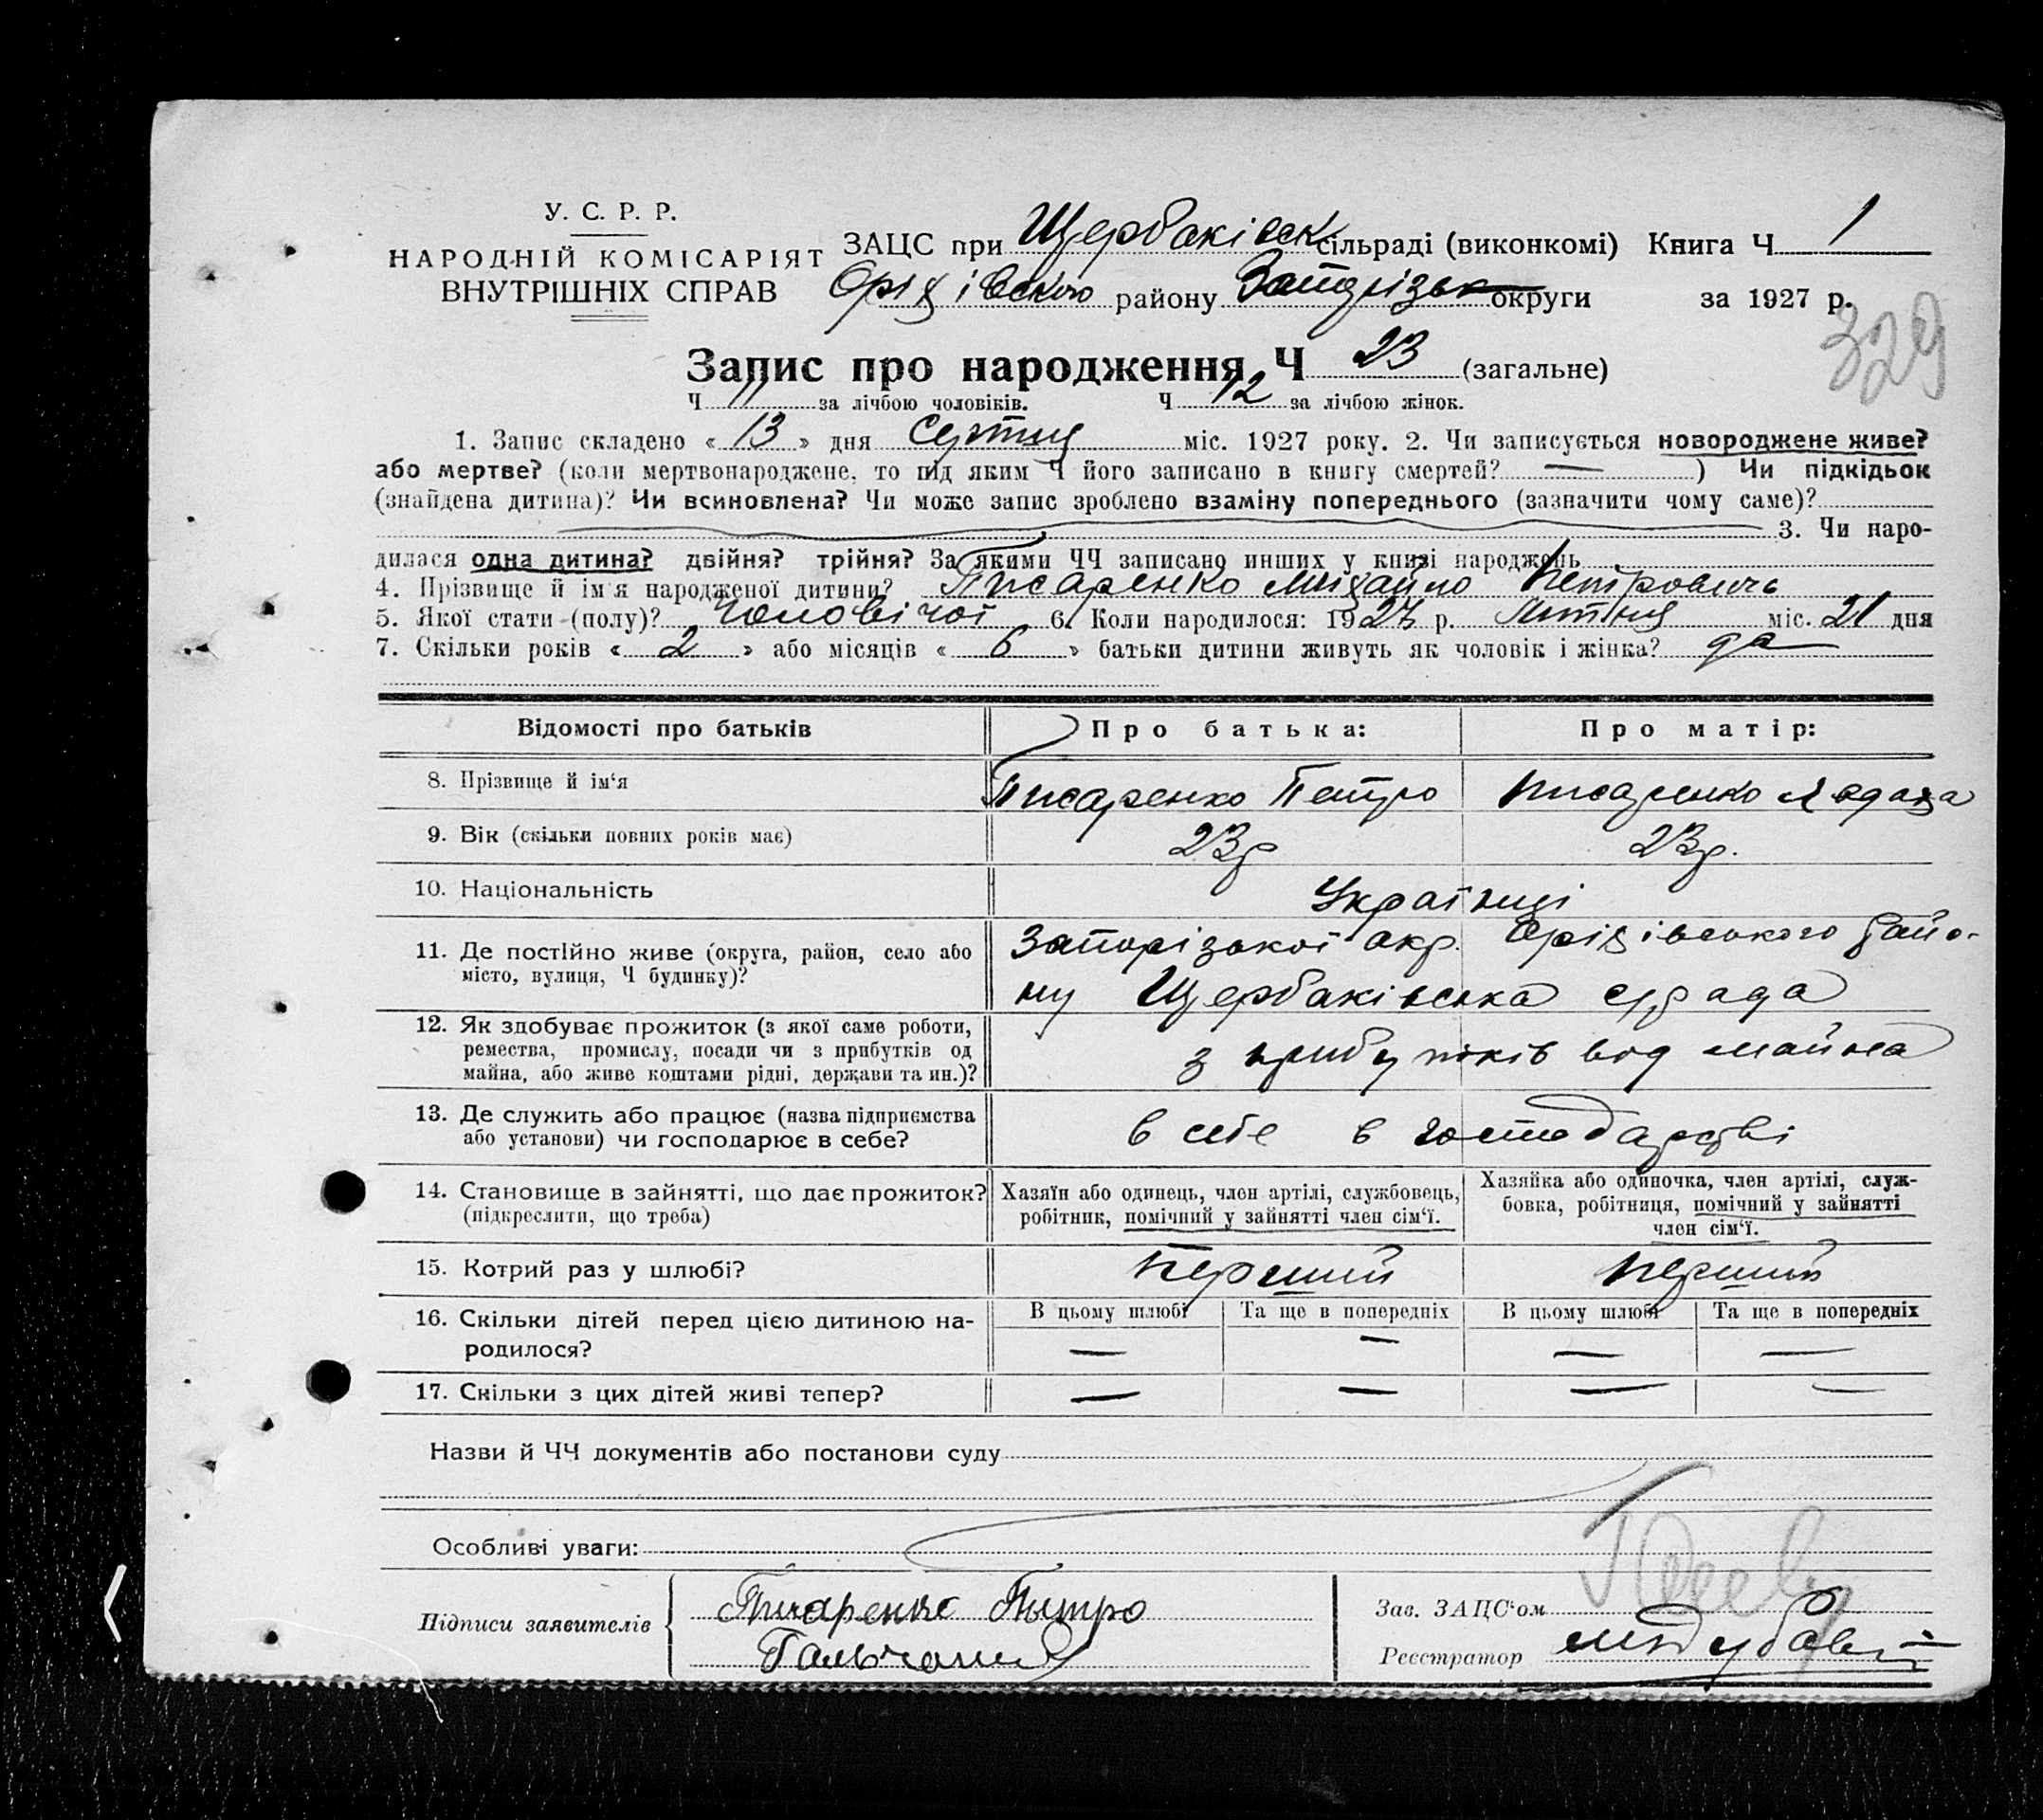 У. С. Р. Р.
НАРОДНІЙ КОМІСАРІЯТ
ВНУТРІШНІХ СПРАВ
ЗАЦС при Щербаківськ. сільраді (виконкомі) Книга Ч 1
Оріхівського району Запорізьк округи за 1927 р.
329
Запис про народження Ч 23 (загальне)
Ч 11 за лічбою чоловіків. Ч 12 за лічбою жінок.
1. Запис складено « 13 » дня Серпня міс. 1927 року. 2. Чи записується новороджене живе?
або мертве? (коли мертвонароджене, то під яким Ч його записано в книгу смертей? — ) Чи підкідьок
(знайдена дитина)? Чи всиновлена? Чи може запис зроблено взаміну попереднього (зазначити чому саме)?
3. Чи наро-
дилася одна дитина? двійня? трійня? За якими ЧЧ записано инших у книзі народжень
4. Прізвище й ім'я народженої дитини? Писаренко Михайло Петровичь
5. Якої стати (полу)? Чоловічої 6. Коли народилося: 1927 р. Липня міс. 21 дня
7. Скільки років « 2 » або місяців « 6 » батьки дитини живуть як чоловік і жінка? да
Відомості про батьків Про батька: Про матір:
8. Прізвище й ім'я Писаренко Петро Писаренко
9. Вік (скільки повних років має) 23р 23р.
10. Національність Українці
11. Де постійно живе (округа, район, село або Запорізької окр. Оріхівського райо-
місто, вулиця, Ч будинку)? ну Щербаківська с/рада
12. Як здобуває прожиток (з якої саме роботи,
ремества, промислу, посади чи з прибутків од з прибутків від майна
майна, або живе коштами рідні, держави та ин.)?
13. Де служить або працює (назва підприємства
або установи) чи господарює в себе? в себе в господарстві
14. Становище в зайнятті, що дає прожиток? Хазяїн або одинець, член артілі, службовець, Хазяйка або одиночка, член артілі, служ-
(підкреслити, що треба) робітник, помічний у зайнятті член сім'ї. бовка, робітниця, помічний у зайнятті
член сім'ї.
15. Котрий раз у шлюбі? Перший Перший
16. Скільки дітей перед цією дитиною на- В цьому шлюбі Та ще в попередніх В цьому шлюбі Та ще в попередніх
родилося? — — — —
17. Скільки з цих дітей живі тепер? — — — —
Назви й ЧЧ документів або постанови суду
Особливі уваги:
Підписи заявителів Писаренко Пытро
Зав. ЗАЦС'ом
Реєстратор